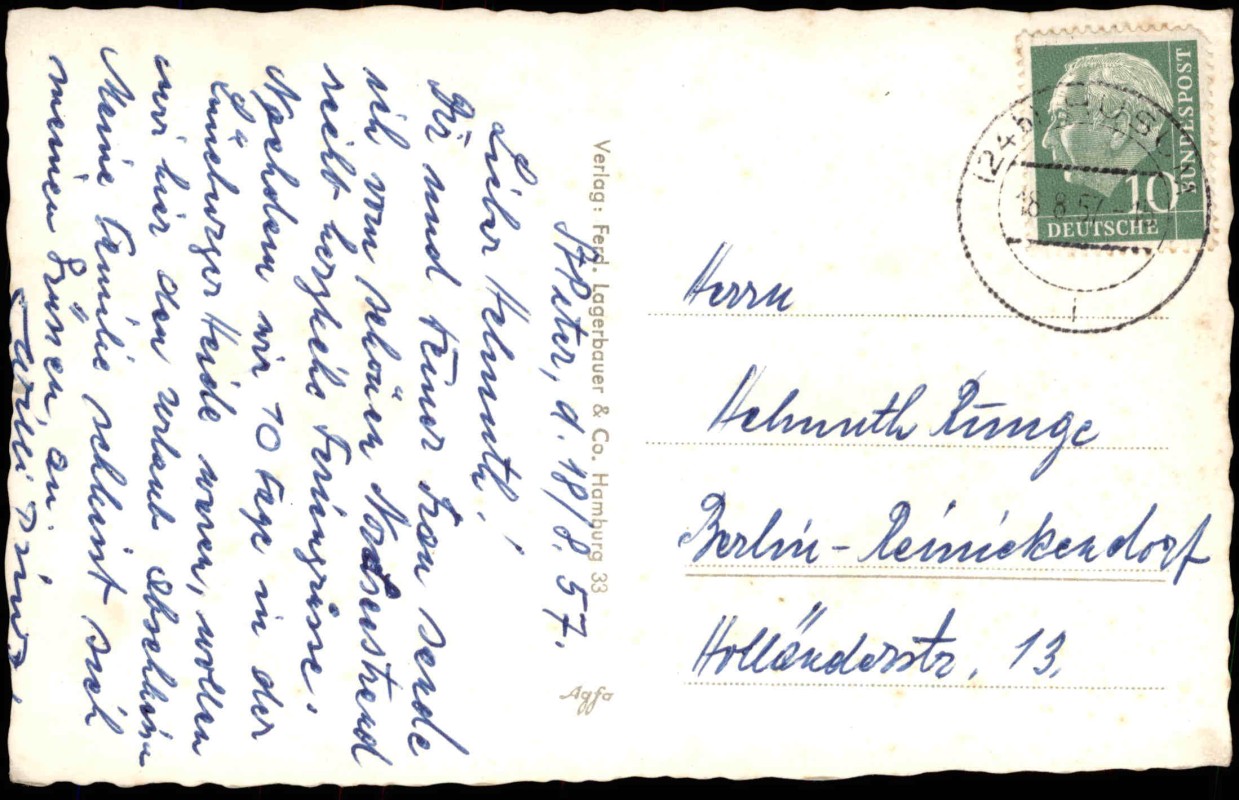 St Peter, d. 18/8. 57.
Lieber Helmuth!
Dir und Deiner Frau sende
ich vom schönen Nordseestrand
recht herzliche Feriengrüsse.
Nachdem wir 10 Tage in der
Lüneburger Heide waren, wollen
wir hier den Urlaub abschließen
Meine Familie schließt sich
meinen Grüssen, an.
Verlag: Ferd. Lagerbauer & Co. Hamburg 33
Agfa
DEUTSCHE
BUNDESPOST
10
(24b)
18.8.57
Herrn
Helmuth Runge
Berlin-Reinickendorf
Holländerstr. 13.